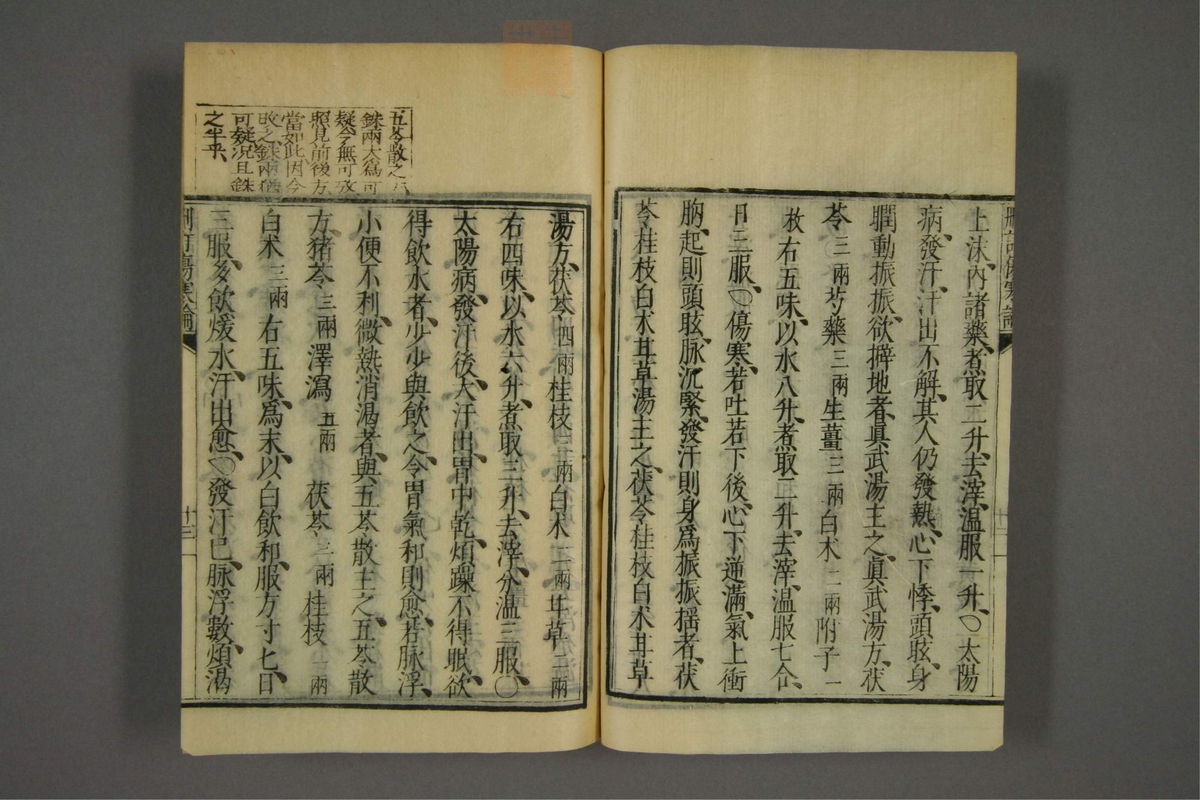 上沫內諸藥煮取二升去滓溫服一升○太陽
病發汗汗出不解其人仍發熱心下悸頭眩身
瞤動振振欲擗地者眞武湯主之眞武湯方茯
苓三兩芍藥三兩生薑三兩白朮二兩附子一
枚右五味以水八升煮取三升去滓溫服七合
日三服○傷寒若吐若下後心下逆滿氣上衝
胸起則頭眩脉沉緊發汗則身爲振振搖者茯
苓桂枝白朮甘草湯主之茯苓桂枝白朮甘草
湯方茯苓四兩桂枝三兩白朮二兩甘草二兩
右四味以水六升煮取三升去滓分溫三服○
太陽病發汗後大汗出胃中乾煩躁不得眠欲
得飲水者少少與飲之令胃氣和則愈若脉浮
小便不利微熱消渴者與五苓散主之五苓散
方猪苓三兩澤瀉五兩茯苓三兩桂枝二兩
白朮三兩右五味爲末以白飲和服方寸匕日
三服多飲煖水汗出愈○發汗已脉浮數煩渴
五苓散之
銖兩大爲可
疑今無可攷
照見前後方
當如此因今
改之銖兩猶
可疑況且銖
之半乎
刪訂傷寒論
十三